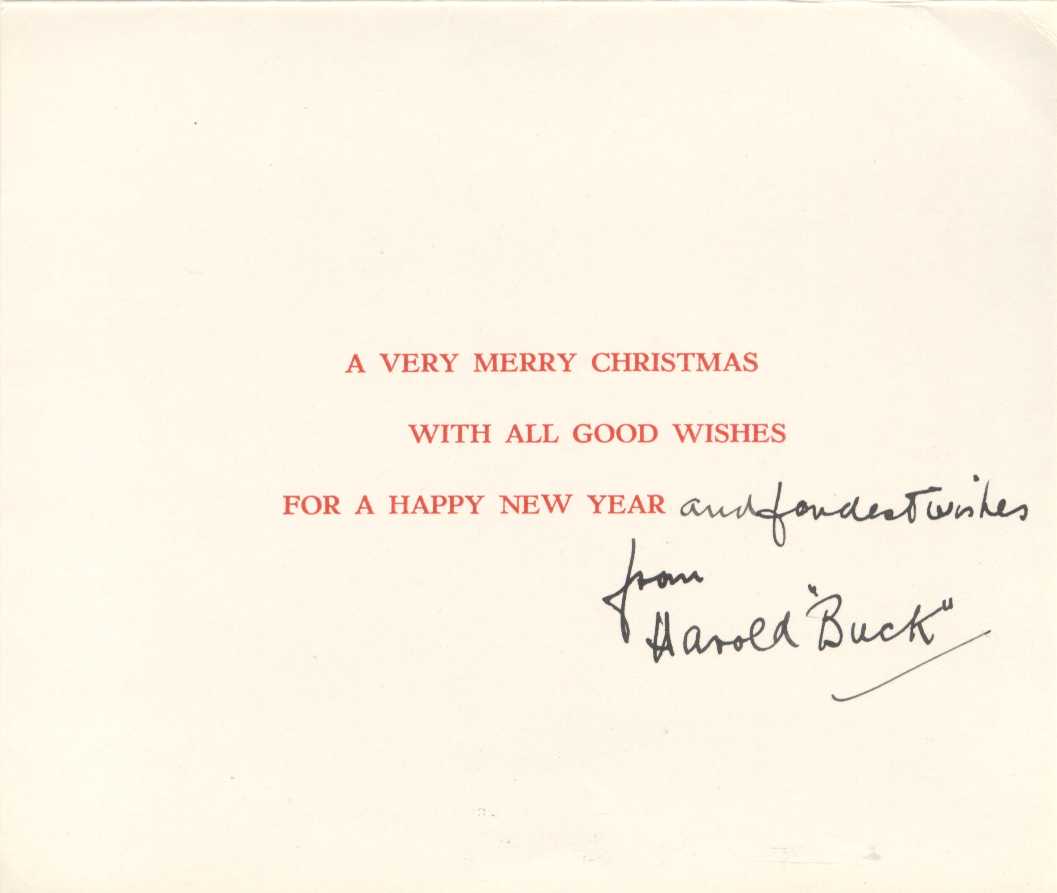 A VERY MERRY CHRISTMAS
WITH ALL GOOD WISHES
FOR A HAPPY NEW YEAR and fondest wishes
from
Harold "Buck"